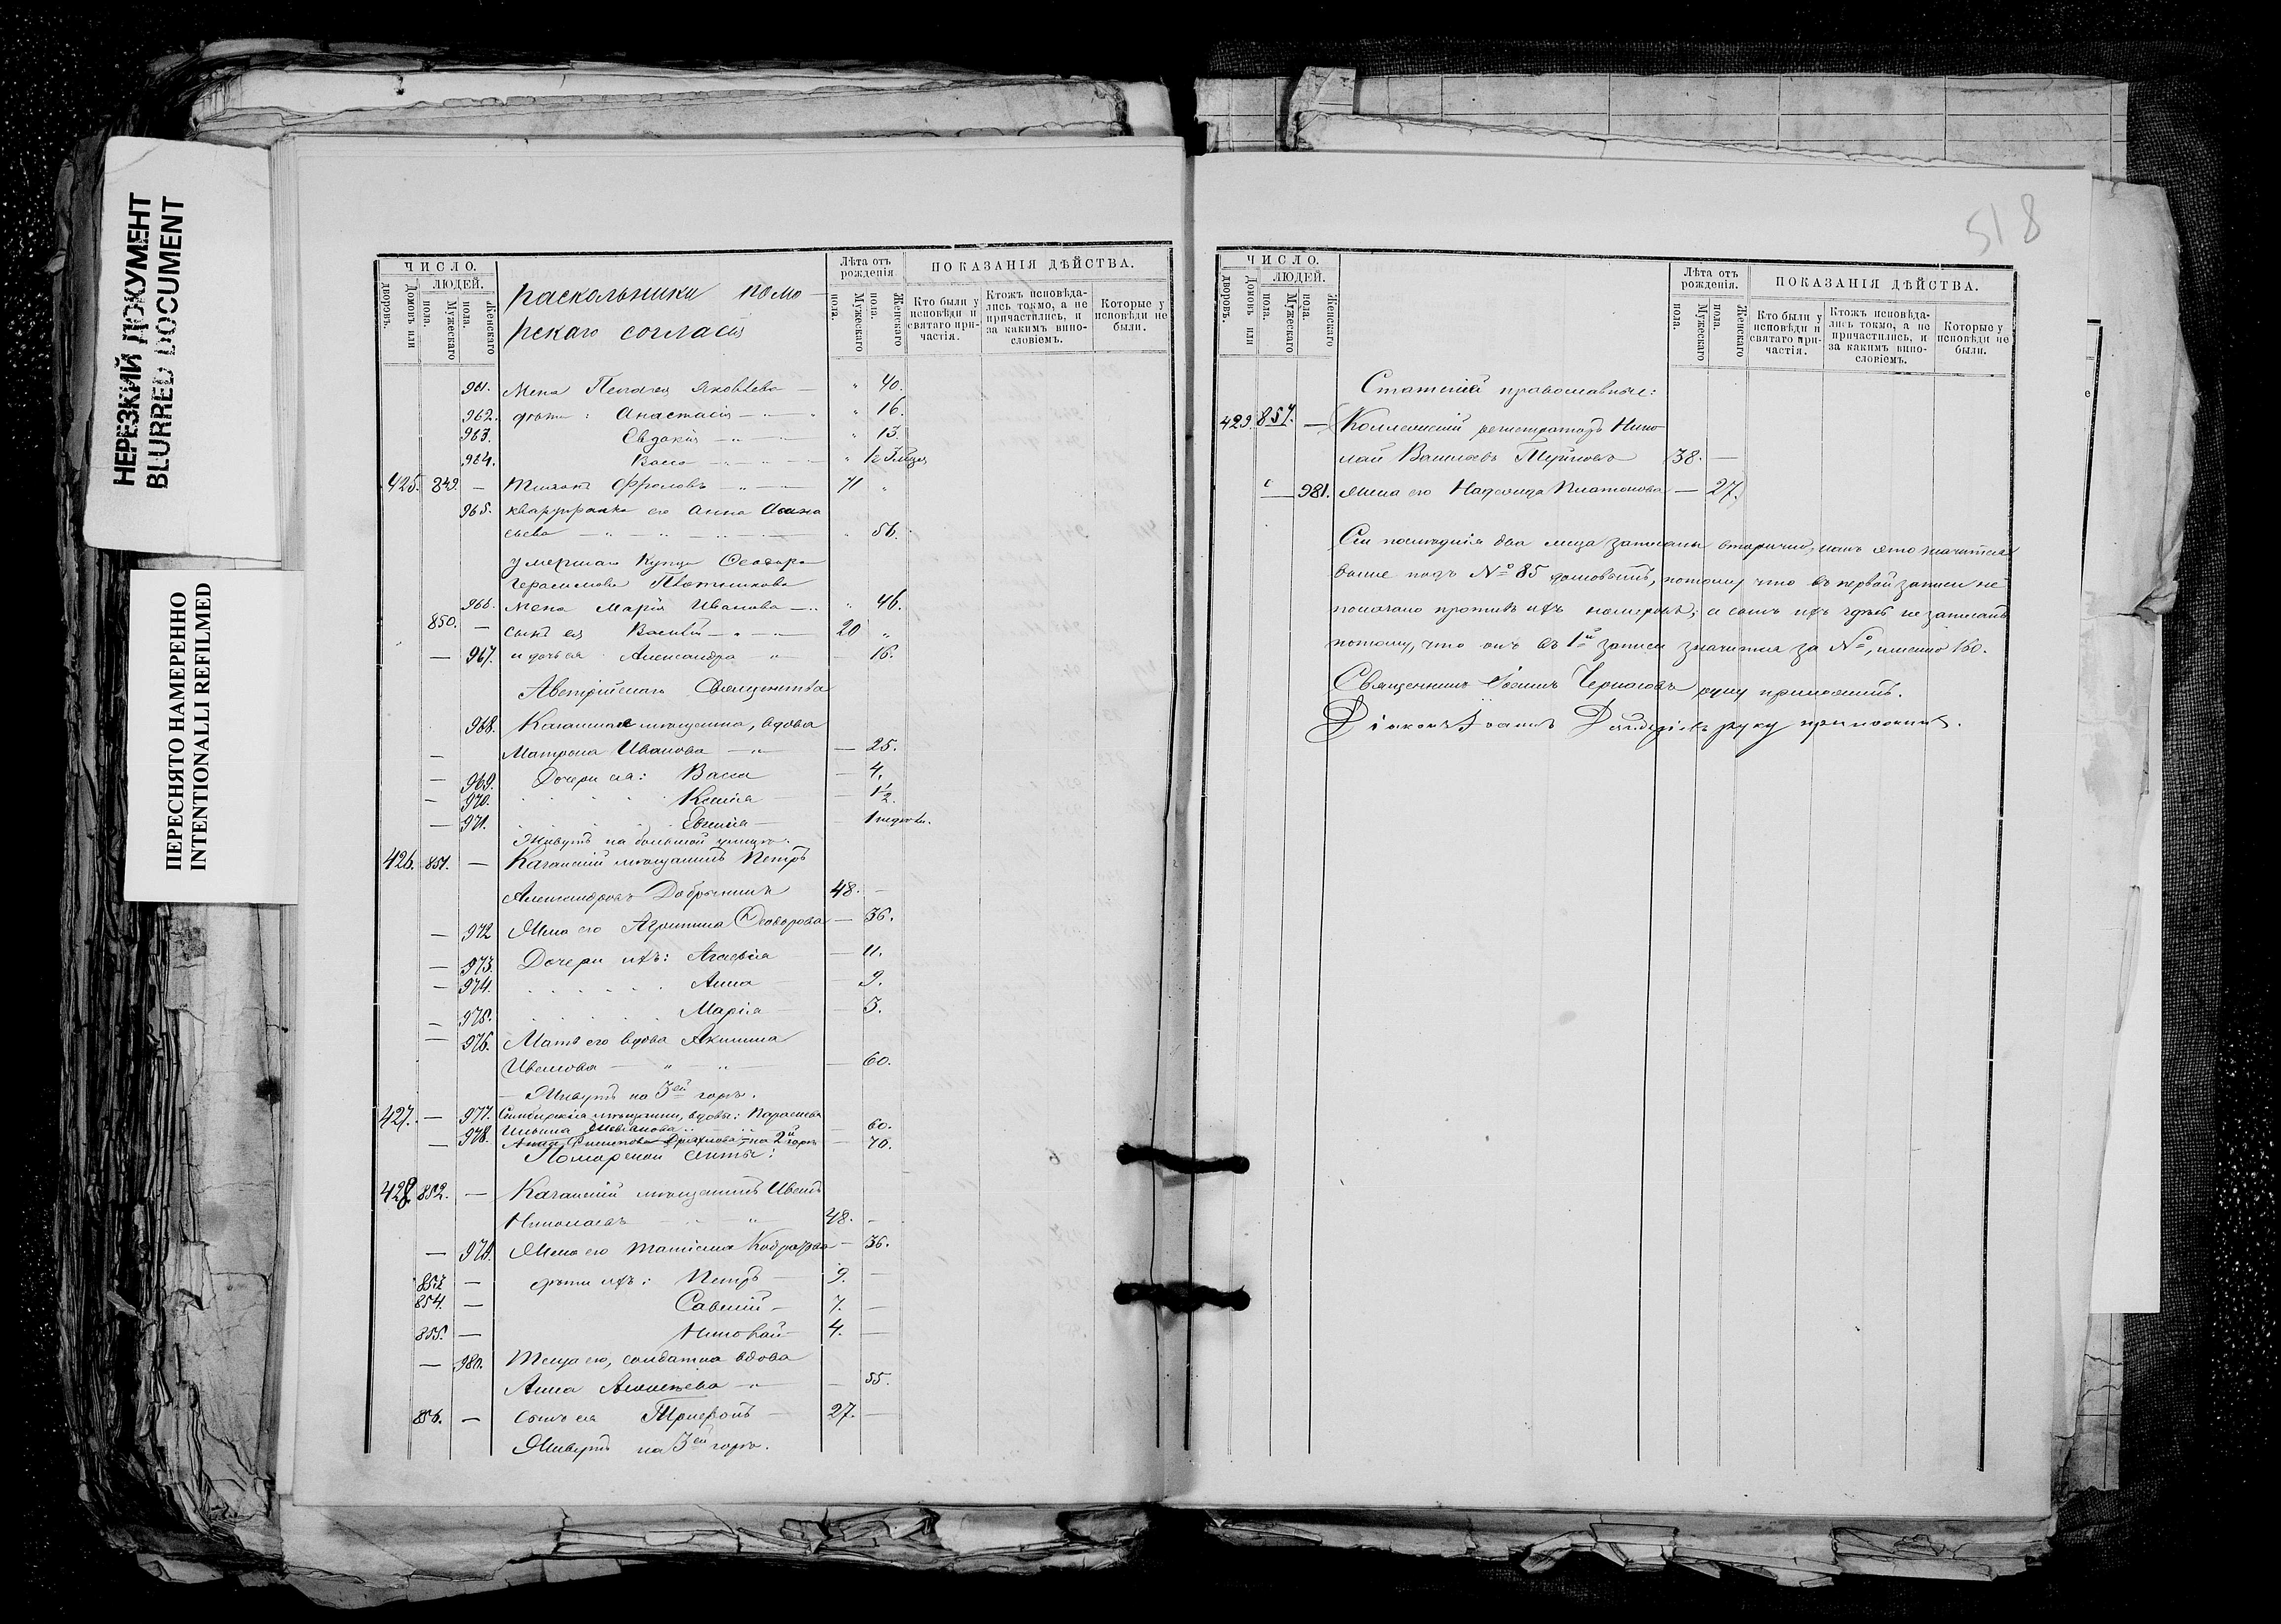 НЕРЕЗКИЙ ДОКУМЕНТ
BLURRED DOCUMENT
ПЕРЕСНЯТО НАМЕРЕННО
INTENTIONALLI REFILMED
ЧИСЛО.
ЛЮДЕЙ.
дворовъ.
Домовъ или
Мужескаго пола.
Женскаго пола.
раскольники помо-
рскаго согласія
Лѣта отъ рожденія
Мужескаго пола.
Женскаго пола.
ПОКАЗАНІЯ ДѢЙСТВА.
Кто были у исповѣди и святаго при-частія.
Ктожъ исповѣда-лись токмо, а не причастились, и за какимъ вино-словіемъ.
Которые у исповѣди не были.
961. жена Пелагея Яковлева — " 40.
962. дѣти: Анастасія — " 16.
963. Евдокія — " 13.
964. Васса — " 1/2
425. 849. — Фроловъ — 71 "
965. его Анна
сьева — " 56.
умершаго купца Ѳеодора
Герасимова Плотникова
966. жена Марія Иванова — " 46.
850. — сынъ ея Василій — 20 "
— 967. и дочь ея Александра " — 16.
Австрійскаго Священства
968. Казанская мѣщанка, вдова
— Матрона Иванова — " — 25.
— 969. Дочери ея: Васса — 4.
— 970. Ксенія — 1 1/2.
— 971. Евгенія — 1 недѣли.
Живутъ на большой улицѣ.
426. 851. — Казанскій мѣщанинъ Петръ
Александровъ Добрынинъ 48. —
— 972 Жена его Агрипина Ѳеодорова — 36.
— 973. Дочери ихъ: Агафія — 11.
— 974. Анна — 9.
— 975. Марія — 3.
— 976. Мать его вдова Акилина
Иванова — " — 60.
— Живутъ на 3ей горѣ.
427. — 977. Симбирскія мѣщанки, вдовы: Параскева
Ильина — 60.
— 978. Филипова на 2й горѣ — 70.
Поморской секты:
428. 852. — Казанскій мѣщанинъ Иванъ
Николаевъ — " 48. —
— 979. Жена его Татіана — 36.
853 — дѣти ихъ: Петръ — 9. —
854. — Савелій — 7. —
855. — Николай — 4. —
— 980. Теща его, солдатка вдова
Анна Алексѣева — " — 55.
856. — сынъ ея Трифонъ — 27. —
Живутъ на 3ей горѣ.
518
ЧИСЛО.
ЛЮДЕЙ.
дворовъ.
Домовъ или
Мужескаго пола.
Женскаго пола.
Лѣта отъ рожденія.
Мужескаго пола.
Женскаго пола.
ПОКАЗАНІЯ ДѢЙСТВА.
Кто были у исповѣди и святаго при-частія.
Ктожъ исповѣда-лись токмо, а не причастились, и за какимъ вино-словіемъ.
Которые у исповѣди не были.
Статскіе православные:
429. 857. — Коллежскій регистраторъ Нико-
лай Васильевъ 38. —
— 981. Жена его Надежда Платонова — 27.
Сіи послѣднія два лица записаны вторично, какъ это значится
выше подъ № 85 домовымъ, потому что въ первой записи не
показано противъ ихъ номеровъ; а сынъ ихъ здѣсь не записанъ
потому, что онъ въ 1й записи значится за №, именно 160.
Священникъ Іоаннъ руку приложилъ.
Діаконъ Іоаннъ руку приложилъ.